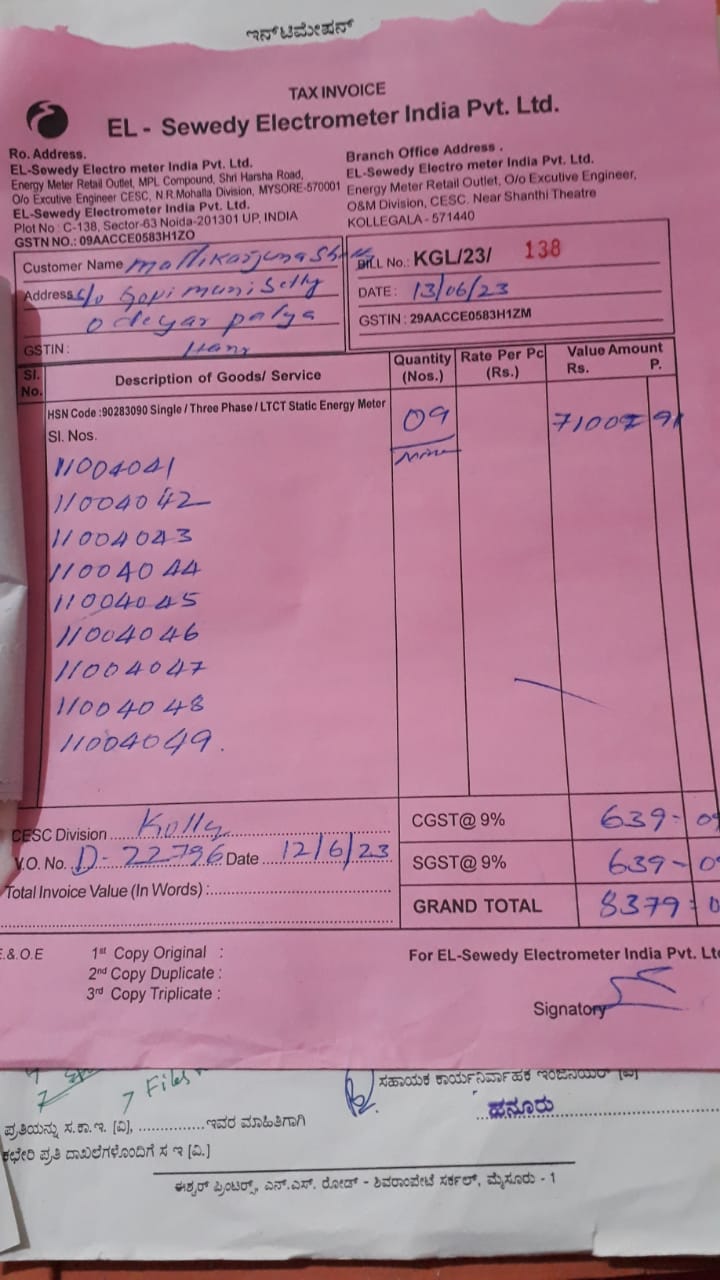 ಇನ್‌ಟಿಮೇಷನ್
TAX INVOICE
EL - Sewedy Electrometer India Pvt. Ltd.
Ro. Address.
EL-Sewedy Electro meter India Pvt. Ltd.
Energy Meter Retail Outlet, MPL Compound, Shri Harsha Road,
O/o Excutive Engineer CESC, N.R.Mohalla Division, MYSORE-570001
EL-Sewedy Electrometer India Pvt. Ltd.
Plot No : C-138, Sector-63 Noida-201301 UP, INDIA
GSTN NO.: 09AACCE0583H1ZO
Branch Office Address .
EL-Sewedy Electro meter India Pvt. Ltd.
Energy Meter Retail Outlet, O/o Excutive Engineer,
O&M Division, CESC. Near Shanthi Theatre
KOLLEGALA - 571440
Customer Name Mallikarjuna
Address c/o Gopi muni Setty
odeyar palya
GSTIN :
BILL No.: KGL/23/ 138
DATE : 13/06/23
GSTIN : 29AACCE0583H1ZM
Sl. No. Description of Goods/ Service Quantity (Nos.) Rate Per Pc (Rs.) Value Amount Rs. P.
HSN Code :90283090 Single / Three Phase / LTCT Static Energy Meter 09 91
Sl. Nos.
11004041
11004042
11004043
11004044
11004045
11004046
11004047
11004048
11004049.
CESC Division Kolly
V.O. No. D- 22796 Date 12/6/23
Total Invoice Value (In Words) :
CGST@ 9% 639-
SGST@ 9% 639-
GRAND TOTAL 8379
E.& O.E
1st Copy Original :
2nd Copy Duplicate :
3rd Copy Triplicate :
For EL-Sewedy Electrometer India Pvt. Ltd
Signatory
7 Files
ಸಹಾಯಕ ಕಾರ್ಯನಿರ್ವಾಹಕ ಇಂಜಿನಿಯರ್ [ವಿ]
ಹನೂರು
ಪ್ರತಿಯನ್ನು ಸ.ಕಾ.ಇ. [ವಿ], ..............ಇವರ ಮಾಹಿತಿಗಾಗಿ
ಕಛೇರಿ ಪ್ರತಿ ದಾಖಲೆಗಳೊಂದಿಗೆ ಸ ಇ [ವಿ.]
ಈಶ್ವರ್ ಪ್ರಿಂಟರ್ಸ್, ಎನ್.ಎಸ್. ರೋಡ್ - ಶಿವರಾಂಪೇಟೆ ಸರ್ಕಲ್, ಮೈಸೂರು - 1